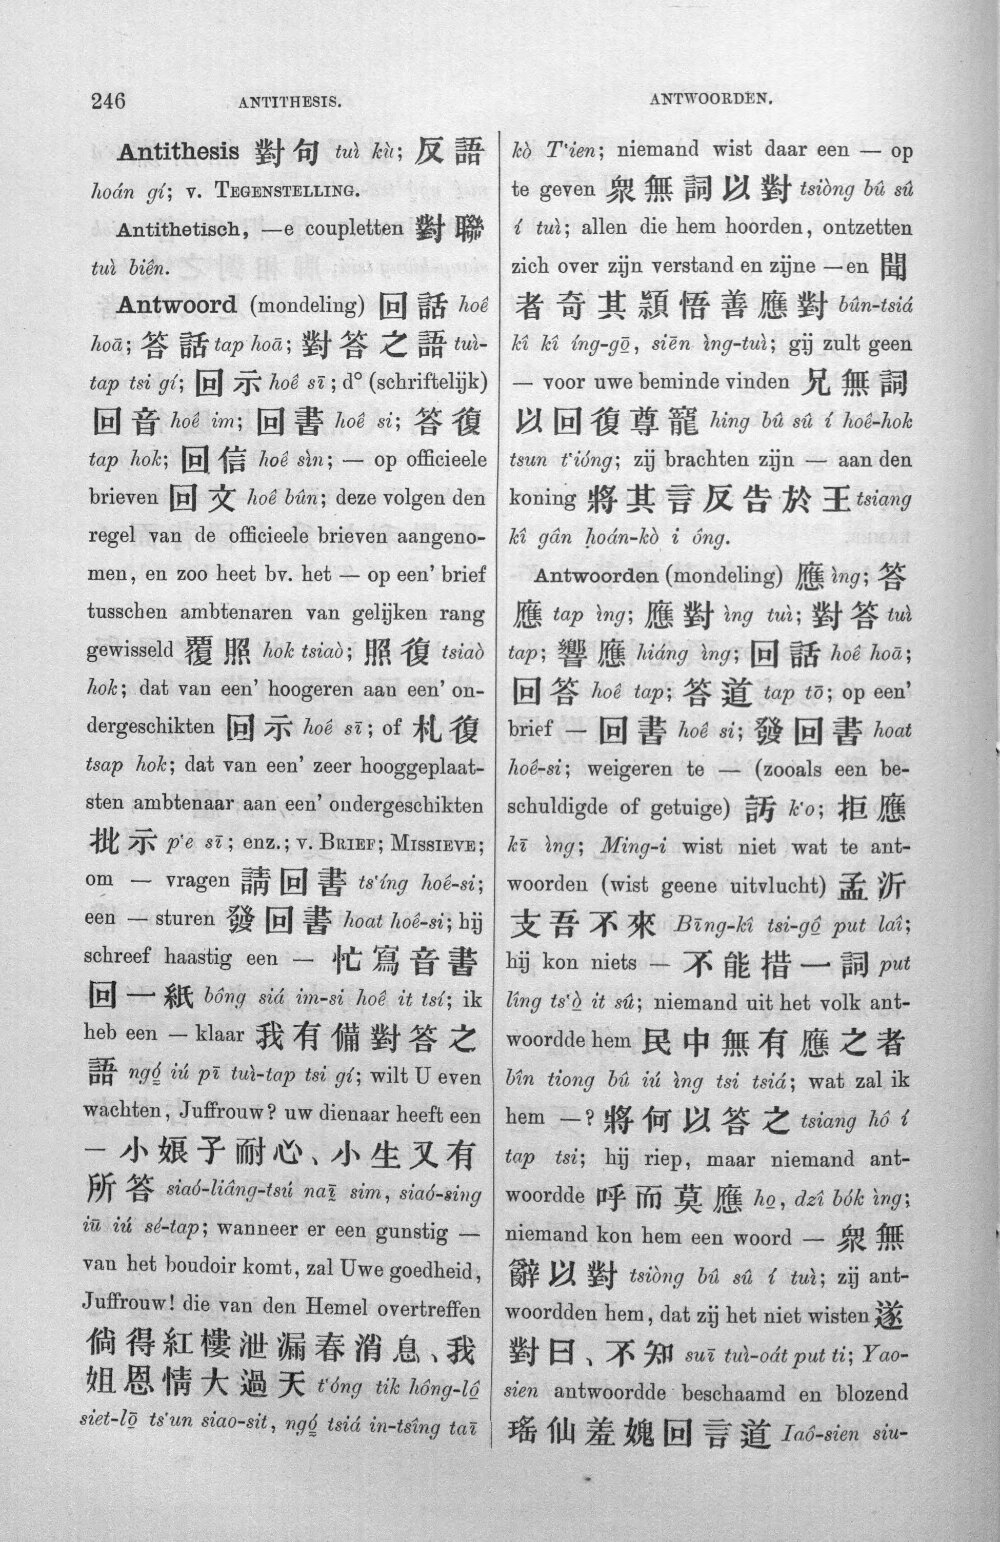 246
ANTITHESIS.
ANTWOORDEN.
Antithesis 對句 tuì kù; 反語
hoán gí; v. TEGENSTELLING.
Antithetisch, —e coupletten 對聯
tuì biên.
Antwoord (mondeling) 回話 hoê
hoā; 答話 tap hoā; 對答之語 tuì-
tap tsi gí; 回示 hoê sī; d° (schriftelijk)
回音 hoê im; 回書 hoê si; 答復
tap hok; 回信 hoê sìn; — op officieele
brieven 回文 hoê bûn; deze volgen den
regel van de officieele brieven aangeno-
men, en zoo heet bv. het — op een' brief
tusschen ambtenaren van gelijken rang
gewisseld 覆照 hok tsiaò; 照復 tsiaò
hok; dat van een' hoogeren aan een' on-
dergeschikten 回示 hoê sī; of 札復
tsap hok; dat van een' zeer hooggeplaat-
sten ambtenaar aan een' ondergeschikten
批示 p'e sī; enz.; v. BRIEF; MISSIEVE;
om — vragen 請回書 ts'íng hoê-si;
een — sturen 發回書 hoat hoê-si; hij
schreef haastig een — 忙寫音書
回一紙 bông siá im-si hoê it tsí; ik
heb een — klaar 我有備對答之
語 ngó̤ iú pī tuì-tap tsi gí; wilt U even
wachten, Juffrouw? uw dienaar heeft een
— 小娘子耐心、小生又有
所答 siaó-liâng-tsú naī sim, siaó-sing
iū iú sé-tap; wanneer er een gunstig —
van het boudoir komt, zal Uwe goedheid,
Juffrouw! die van den Hemel overtreffen
倘得紅樓泄漏春消息、我
姐恩情大過天 t'óng tik hông-lô̤
siet-lō̤ ts'un siao-sit, ngó̤ tsiá in-tsîng taī
kò T'ien; niemand wist daar een — op
te geven 衆無詞以對 tsiòng bû sû
í tuì; allen die hem hoorden, ontzetten
zich over zijn verstand en zijne —en 聞
者奇其穎悟善應對 bûn-tsiá
kî kî íng-gō̤, siēn ìng-tuì; gij zult geen
— voor uwe beminde vinden 兄無詞
以回復尊寵 hing bû sû í hoê-hok
tsun t'ióng; zij brachten zijn — aan den
koning 將其言反告於王 tsiang
kî gân hoán-kò i óng.
Antwoorden (mondeling) 應 ìng; 答
應 tap ìng; 應對 ìng tuì; 對答 tuì
tap; 響應 hiáng ìng; 回話 hoê hoā;
回答 hoê tap; 答道 tap tō; op een'
brief — 回書 hoê si; 發回書 hoat
hoê-si; weigeren te — (zooals een be-
schuldigde of getuige) 訝 k'o; 拒應
kī ìng; Ming-i wist niet wat te ant-
woorden (wist geene uitvlucht) 孟沂
支吾不來 Bīng-kî tsi-gô̤ put laî;
hij kon niets — 不能措一詞 put
lîng ts'ò̤ it sû; niemand uit het volk ant-
woordde hem 民中無有應之者
bîn tiong bû iú ìng tsi tsiá; wat zal ik
hem —? 將何以答之 tsiang hô í
tap tsi; hij riep, maar niemand ant-
woordde 呼而莫應 ho̤, dzî bók ìng;
niemand kon hem een woord — 衆無
辭以對 tsiòng bû sû í tuì; zij ant-
woordden hem, dat zij het niet wisten 遂
對曰、不知 suī tuì-oát put ti; Yao-
sien antwoordde beschaamd en blozend
瑤仙羞媿回言道 Iaô-sien siu-